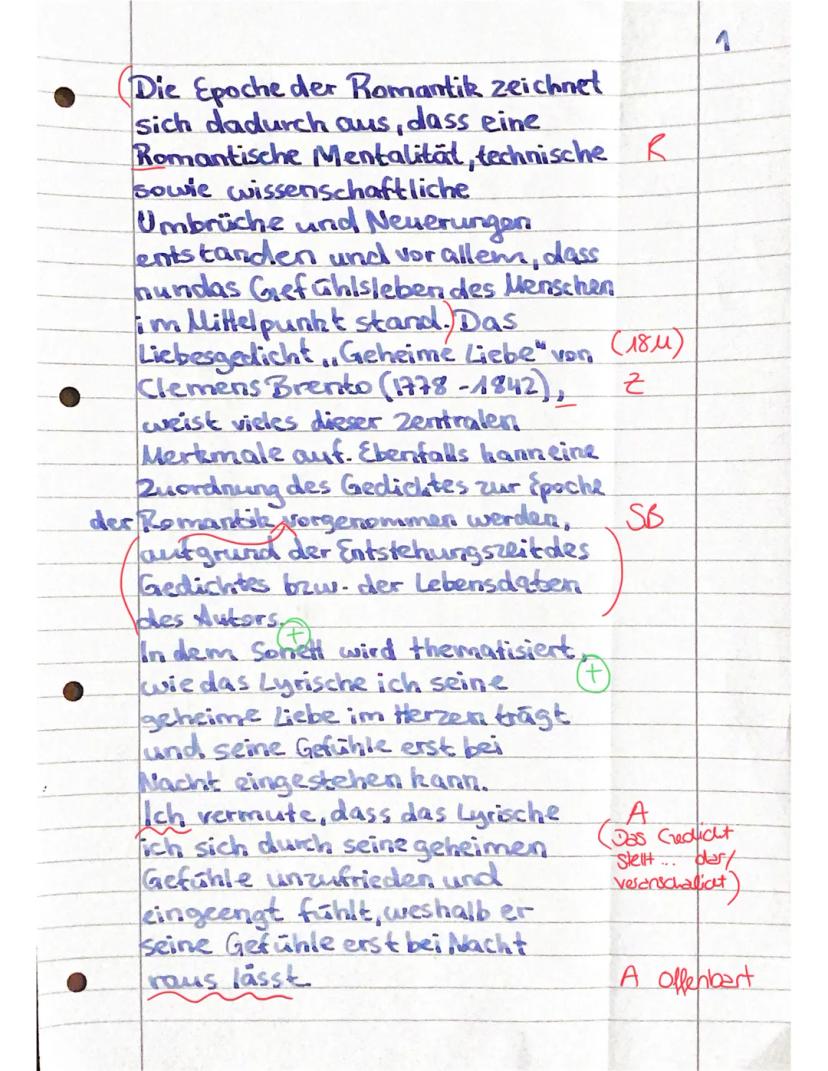 1
(Die Epoche der Romantik zeichnet
sich dadurch aus, dass eine
Romantische Mentalität, technische R
sowie wissenschaftliche
Umbrüche und Neuerungen
entstanden und vor allem, dass
nun das Gefühlsleben des Menschen
im Mittelpunkt stand.) Das
Liebesgedicht „Geheime Liebe" von (18M)
Clemens Brento (1778 - 1842), Z
weist vieles dieser zentralen
Merkmale auf. Ebenfalls kann eine
Zuordnung des Gedichtes zur Epoche
der Romantik vorgenommen werden, SB
(aufgrund der Entstehungszeit des
Gedichtes bzw. der Lebensdaten
des Autors.)
In dem Sonett wird thematisiert, +
wie das Lyrische ich seine +
geheime Liebe im Herzen trägt
und seine Gefühle erst bei
Nacht eingestehen kann.
Ich vermute, dass das Lyrische A
ich sich durch seine geheimen (Das Gedicht
Gefühle unzufrieden und stellt... dar/
eingeengt fühlt, weshalb er veranschaulicht)
seine Gefühle erst bei Nacht
raus lässt. A offenbart